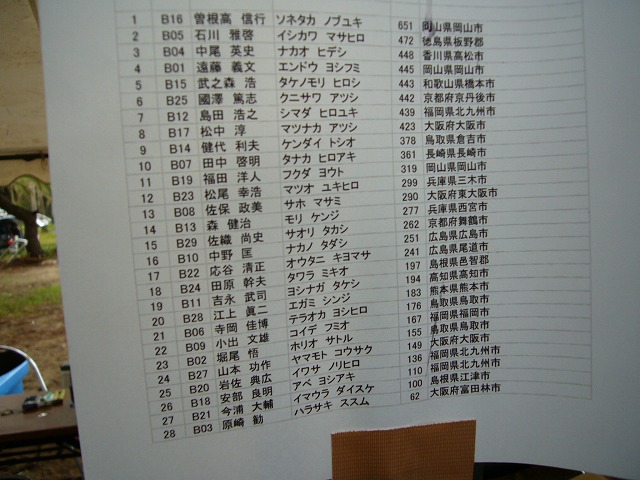 1 B16 曽根高 信行 ソネタカ ノブユキ 651 岡山県岡山市
2 B05 石川 雅啓 イシカワ マサヒロ 472 徳島県板野郡
3 B04 中尾 英史 ナカオ ヒデシ 448 香川県高松市
4 B01 遠藤 義文 エンドウ ヨシフミ 445 岡山県岡山市
5 B15 武之森 浩 タケノモリ ヒロシ 443 和歌山県橋本市
6 B25 國澤 篤志 クニサワ アツシ 442 京都府京丹後市
7 B12 島田 浩之 シマダ ヒロユキ 439 福岡県北九州市
8 B17 松中 淳 マツナカ アツシ 423 大阪府大阪市
9 B14 健代 利夫 ケンダイ トシオ 378 鳥取県倉吉市
10 B07 田中 啓明 タナカ ヒロアキ 361 長崎県長崎市
11 B19 福田 洋人 フクダ ヨウト 319 岡山県岡山市
12 B23 松尾 幸浩 マツオ ユキヒロ 299 兵庫県三木市
13 B08 佐保 政美 サホ マサミ 290 大阪府東大阪市
14 B13 森 健治 モリ ケンジ 277 兵庫県西宮市
15 B29 佐織 尚史 サオリ タカシ 262 京都府舞鶴市
16 B10 中野 匡 ナカノ タダシ 251 広島県広島市
17 B22 応谷 清正 オウタニ キヨマサ 241 広島県尾道市
18 B24 田原 幹夫 タワラ ミキオ 197 島根県邑智郡
19 B11 吉永 武司 ヨシナガ タケシ 194 高知県高知市
20 B28 江上 眞二 エガミ シンジ 183 熊本県熊本市
21 B06 寺岡 佳博 テラオカ ヨシヒロ 176 鳥取県鳥取市
22 B09 小出 文雄 コイデ フミオ 167 福岡県福岡市
23 B02 堀尾 悟 ホリオ サトル 155 鳥取県鳥取市
24 B27 山本 功作 ヤマモト コウサク 149 大阪府大阪市
25 B20 岩佐 典広 イワサ ノリヒロ 136 福岡県北九州市
26 B18 安部 良明 アベ ヨシアキ 110 福岡県北九州市
27 B21 今浦 大輔 イマウラ ダイスケ 100 島根県江津市
28 B03 原崎 勧 ハラサキ ススム 62 大阪府富田林市